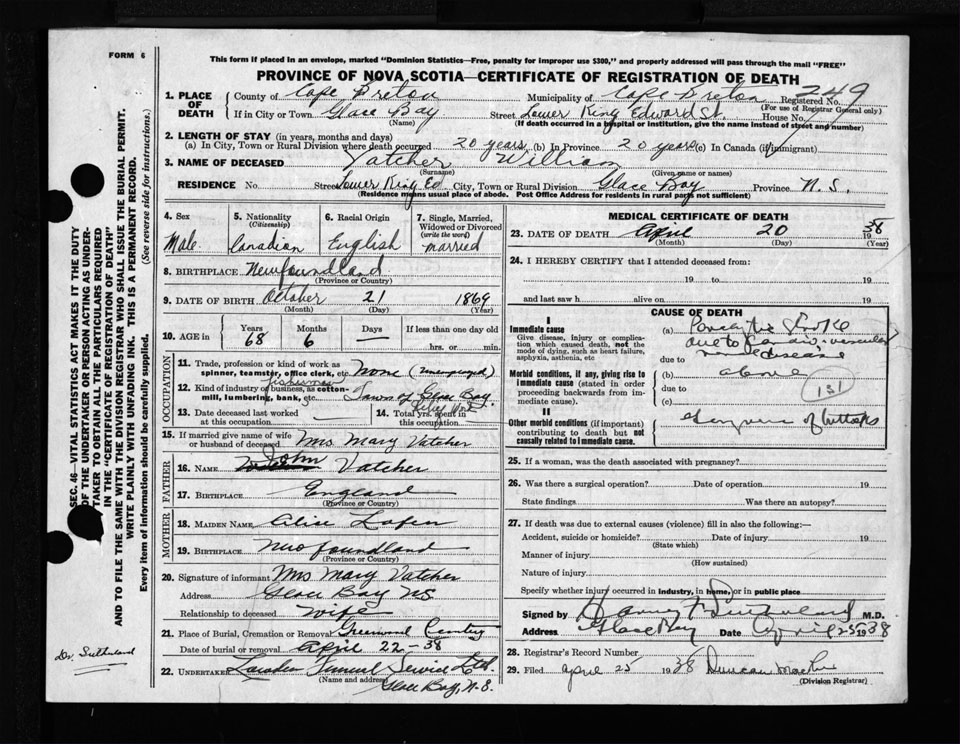 FORM 6
This form if placed in an envelope, marked "Dominion Statistics—Free, penalty for improper use $300," and properly addressed will pass through the mail "FREE"
PROVINCE OF NOVA SCOTIA—CERTIFICATE OF REGISTRATION OF DEATH
1. PLACE OF DEATH County of Cape Breton Municipality of Cape Breton Registered No. 249
(For use of Registrar General only)
If in City or Town Glace Bay Street Lower King Edward St. House No.
(Name) (If death occurred in a hospital or institution, give the name instead of street and number)
2. LENGTH OF STAY (in years, months and days)
(a) In City, Town or Rural Division where death occurred 20 years (b) In Province 20 years (c) In Canada (if immigrant)
3. NAME OF DECEASED Vatcher William
(Surname) (Given name or names)
RESIDENCE No. Street Lower King Ed City, Town or Rural Division Glace Bay Province N.S.
(Residence means usual place of abode. Post Office Address for residents in rural parts not sufficient)
4. Sex Male
5. Nationality (Citizenship) Canadian
6. Racial Origin English
7. Single, Married, Widowed or Divorced (write the word) married
8. BIRTHPLACE Newfoundland
(Province or Country)
9. DATE OF BIRTH October 21 1869
(Month) (Day) (Year)
10. AGE in Years 68 Months 6 Days — If less than one day old hrs. or min.
OCCUPATION
11. Trade, profession or kind of work as spinner, teamster, office clerk, etc. None (Unemployed)
fisherman
12. Kind of industry or business, as cotton-mill, lumbering, bank, etc. Town of Glace Bay
Relief Work
13. Date deceased last worked at this occupation
14. Total yrs. spent in this occupation
15. If married give name of wife or husband of deceased Mrs Mary Vatcher
FATHER
16. NAME John Vatcher
17. BIRTHPLACE England
(Province or Country)
MOTHER
18. MAIDEN NAME Alice
19. BIRTHPLACE Newfoundland
(Province or Country)
20. Signature of informant Mrs Mary Vatcher
Address Glace Bay NS
Relationship to deceased Wife
21. Place of Burial, Cremation or Removal Greenwood Cemetery
Date of burial or removal April 22-38
22. UNDERTAKER Funeral Service Ltd.
(Name and address) Glace Bay, N.S.
MEDICAL CERTIFICATE OF DEATH
23. DATE OF DEATH April 20 1938
(Month) (Day) (Year)
24. I HEREBY CERTIFY that I attended deceased from:
19 to 19
and last saw h alive on 19
CAUSE OF DEATH
I
Immediate cause
Give disease, injury or complication which caused death, not the mode of dying, such as heart failure, asphyxia, asthenia, etc
(a) Stroke
due to Cardio-vascular
due to disease
Morbid conditions, if any, giving rise to immediate cause (stated in order proceeding backwards from immediate cause).
(b) above
due to
(c)
131
II
Other morbid conditions (if important) contributing to death but not causally related to immediate cause.
25. If a woman, was the death associated with pregnancy?
26. Was there a surgical operation? Date of operation 19
State findings Was there an autopsy?
27. If death was due to external causes (violence) fill in also the following:—
Accident, suicide or homicide? Date of injury 19
(State which)
Manner of injury
(How sustained)
Nature of injury
Specify whether injury occurred in industry, in home, or in public place
Signed by Harvey Sutherland M.D.
Address Glace Bay Date April 25 1938
28. Registrar's Record Number
29. Filed April 25 1938 Duncan
(Division Registrar)
SEC. 46—VITAL STATISTICS ACT MAKES IT THE DUTY OF THE UNDERTAKER OR PERSON ACTING AS UNDERTAKER TO OBTAIN ALL THE PARTICULARS REQUIRED IN THE "CERTIFICATE OF REGISTRATION OF DEATH"
AND TO FILE THE SAME WITH THE DIVISION REGISTRAR WHO SHALL ISSUE THE BURIAL PERMIT.
WRITE PLAINLY WITH UNFADING INK. THIS IS A PERMANENT RECORD.
Every item of information should be carefully supplied. (See reverse side for instructions.)
Dr. Sutherland